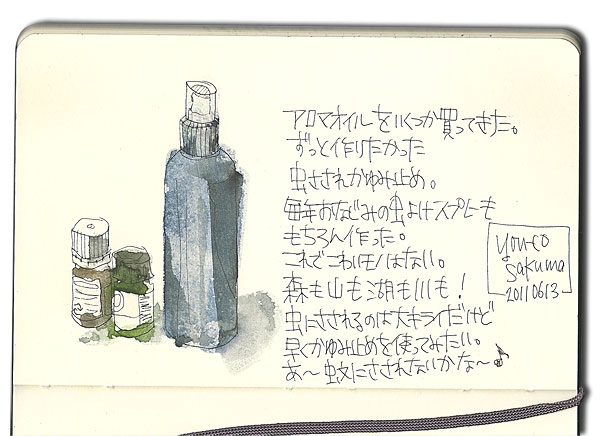 アロマオイルをいくつか買ってきた。
ずっと作りたかった
虫さされかゆみ止め。
毎年おなじみの虫よけスプレーも
もちろん作った。
これでこわいモノはない。
森も山も湖も川も!
虫にさされるのは大キライだけど
早くかゆみ止めを使ってみたい。
あ〜蚊にさされないかな〜♪
youco
sakuma
20110613